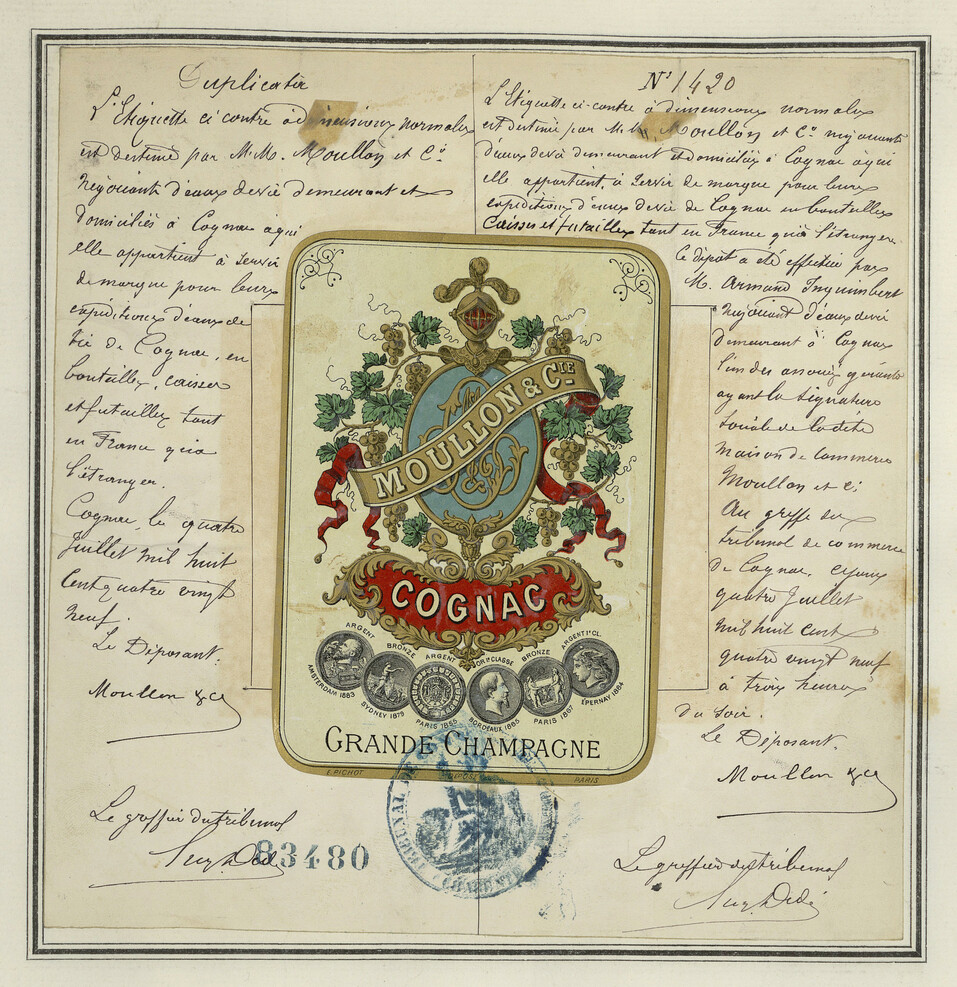 Duplicata
L'Etiquette ci contre à dimensions normales
est destinée par M.M. Moullon et Cie
Négociants d'eaux de vie demeurant et
domiciliés à Cognac à qui
elle appartient à servir
de marque pour leurs
expéditions d'eaux de
vie de Cognac, en
bouteilles, caisses
et futailles tant
en France qu'à
l'étranger.
Cognac, le quatre
Juillet mil huit
cent quatre vingt
neuf.
Le Déposant.
Moullon & Co
Le greffier du tribunal
83480
N° 1420
L'Etiquette ci-contre à dimensions normales
est destinée par M.M. Moullon et Cie négociants
d'eaux de vie demeurant et domiciliés à Cognac à qui
elle appartient, à servir de marque pour leurs
expéditions d'eaux de vie de Cognac en bouteilles
caisses et futailles tant en France qu'à l'étranger.
Le dépôt a été effectué par
M. Armand Inguimbert
Négociant d'eaux de vie
demeurant à Cognac
l'un des associés gérants
ayant la signature
sociale de la dite
maison de commerce
Moullon et Cie
Au greffe du
tribunal de commerce
de Cognac, ce jour
quatre Juillet
mil huit cent
quatre vingt neuf
à trois heures
du soir.
Le Déposant.
Moullon & Co
Le greffier du tribunal
MOULLON & CIE
COGNAC
ARGENT
AMSTERDAM 1883
BRONZE
SYDNEY 1879
ARGENT
PARIS 1885
OR 1e CLASSE
BORDEAUX 1865
BRONZE
PARIS 1867
ARGENT 1e CL.
ÉPERNAY 1884
GRANDE CHAMPAGNE
E. PICHOT
DÉPOSÉ
PARIS
TRIBUNAL DE
CHARENTE